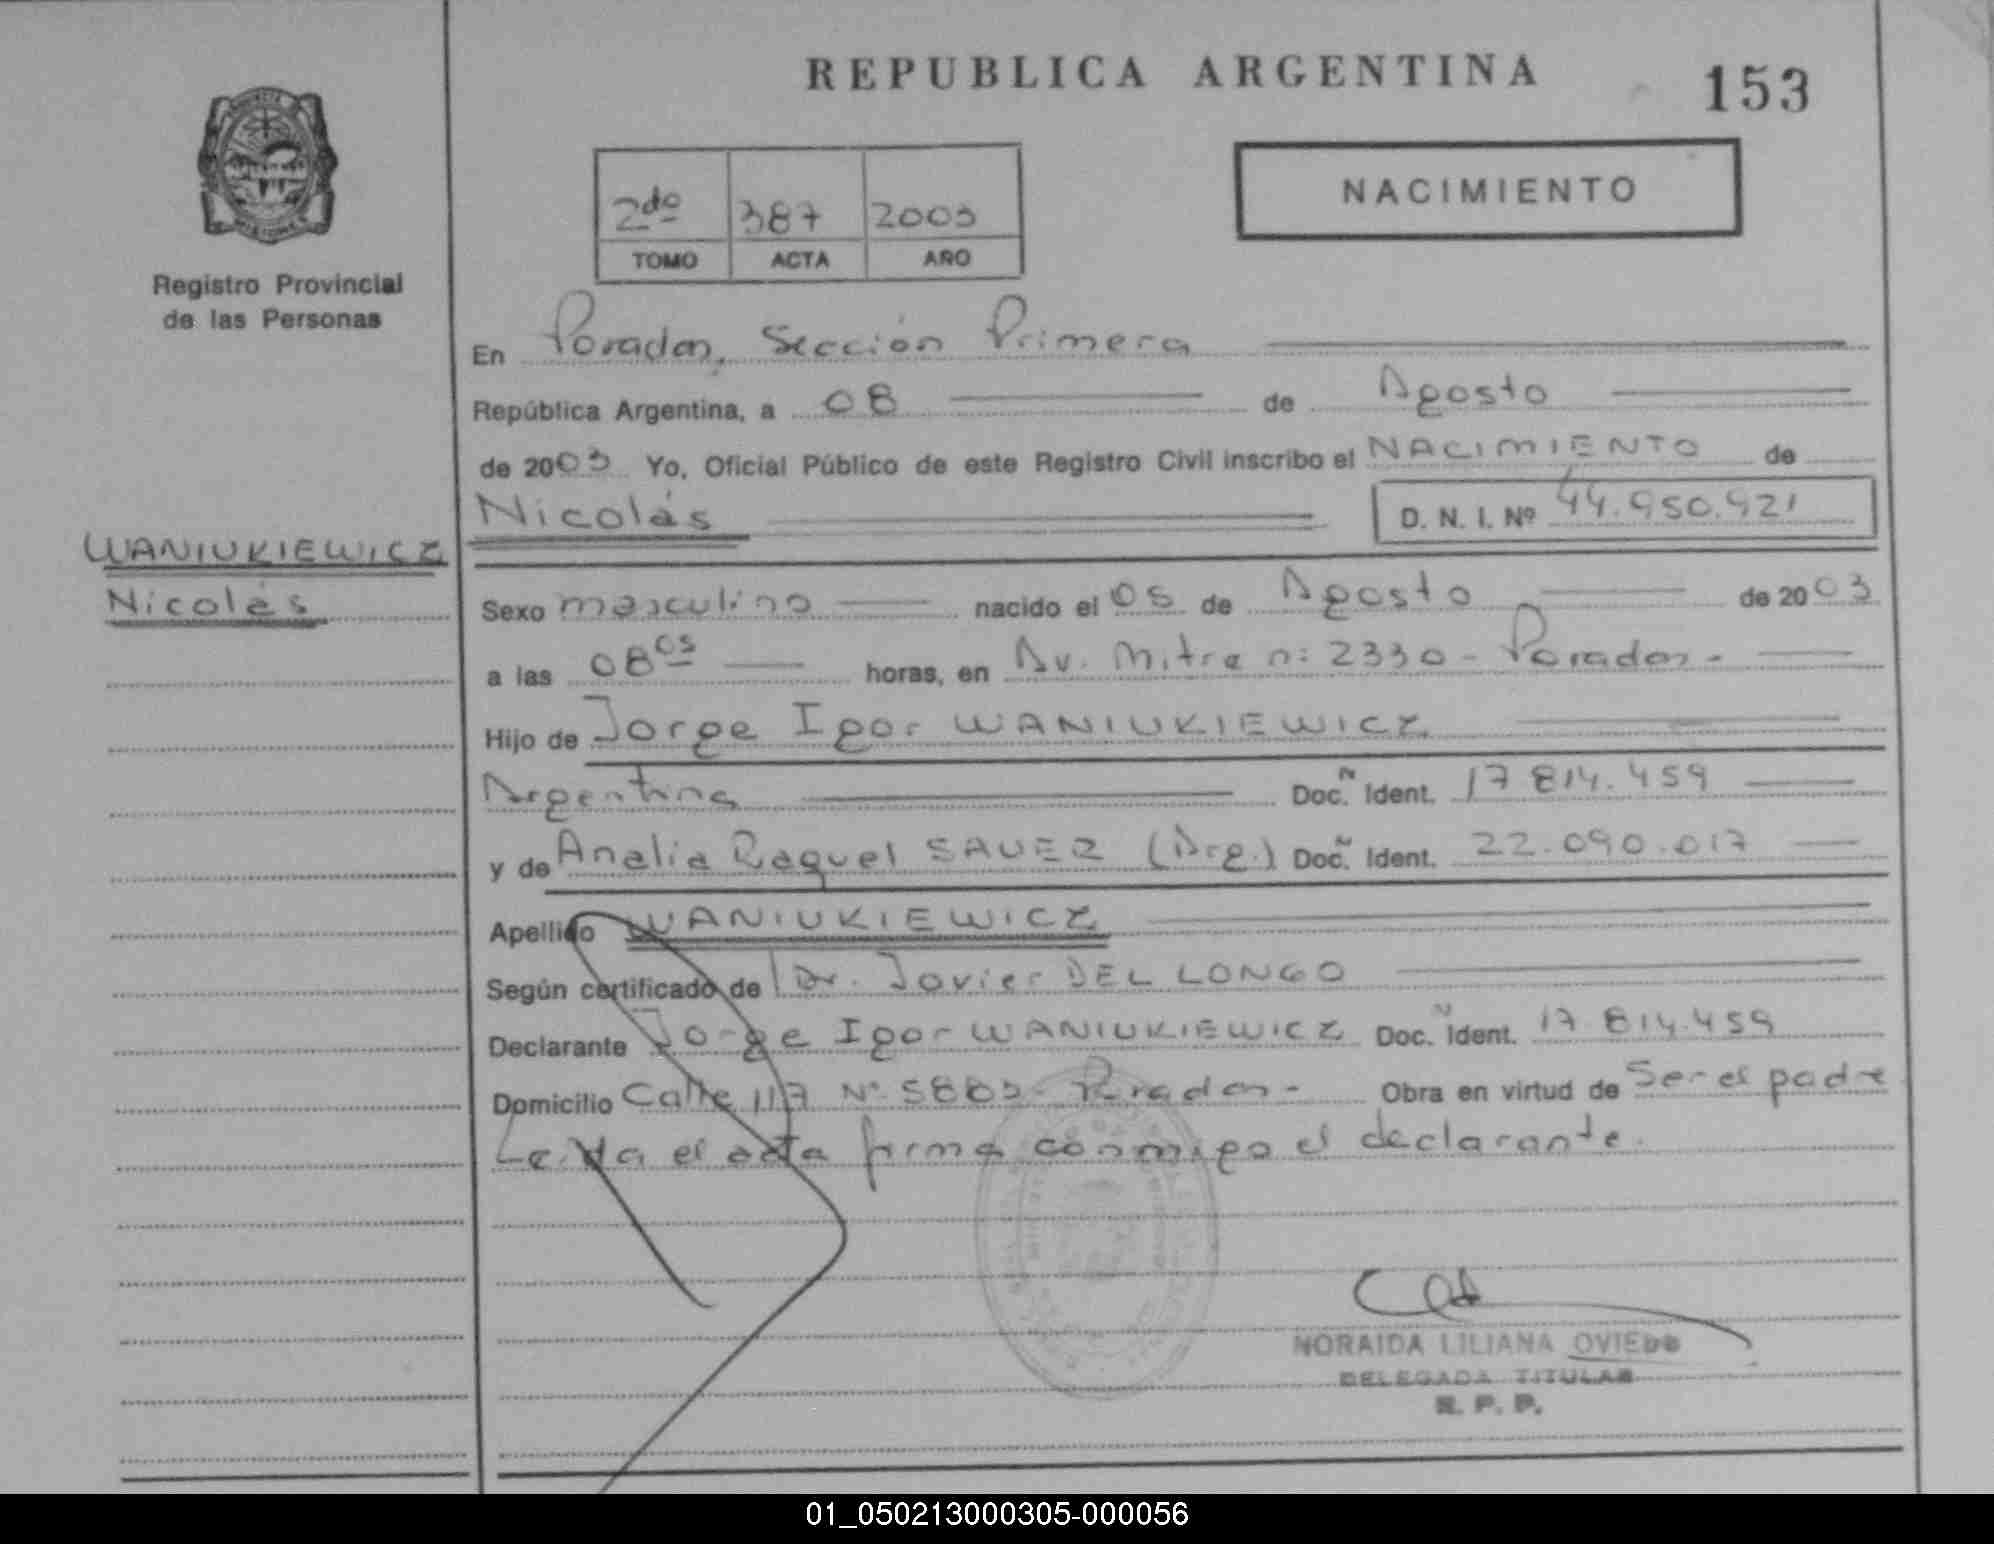 REPUBLICA ARGENTINA
153
NACIMIENTO
2do 387 2003
TOMO ACTA AÑO
Registro Provincial
de las Personas
En Posadas, Sección Primera
República Argentina, a 08 de Agosto
de 2003 Yo, Oficial Público de este Registro Civil inscribo el NACIMIENTO de
Nicolás D. N. I. Nº 44.950.921
WANIUKIEWICZ
Nicolás
Sexo masculino nacido el 05 de Agosto de 2003
a las 08 05 horas, en Av. Mitre n: 2330 - Posadas -
Hijo de Jorge Igor WANIUKIEWICZ
Argentina Doc. Ñ Ident. 17 814.459
y de Analia Raquel SAUER (Arg.) Doc. Ñ Ident. 22.090.017
Apellido WANIUKIEWICZ
Según certificado de Dr. Javier DEL LONGO
Declarante Jorge Igor WANIUKIEWICZ Doc. Ñ Ident. 17 814.459
Domicilio Calle 117 Nº Posadas - Obra en virtud de Ser el padre
Leida el acta firma conmigo el declarante.
NORAIDA LILIANA OVIEDO
DELEGADA TITULAR
R. P. P.
01_050213000305-000056